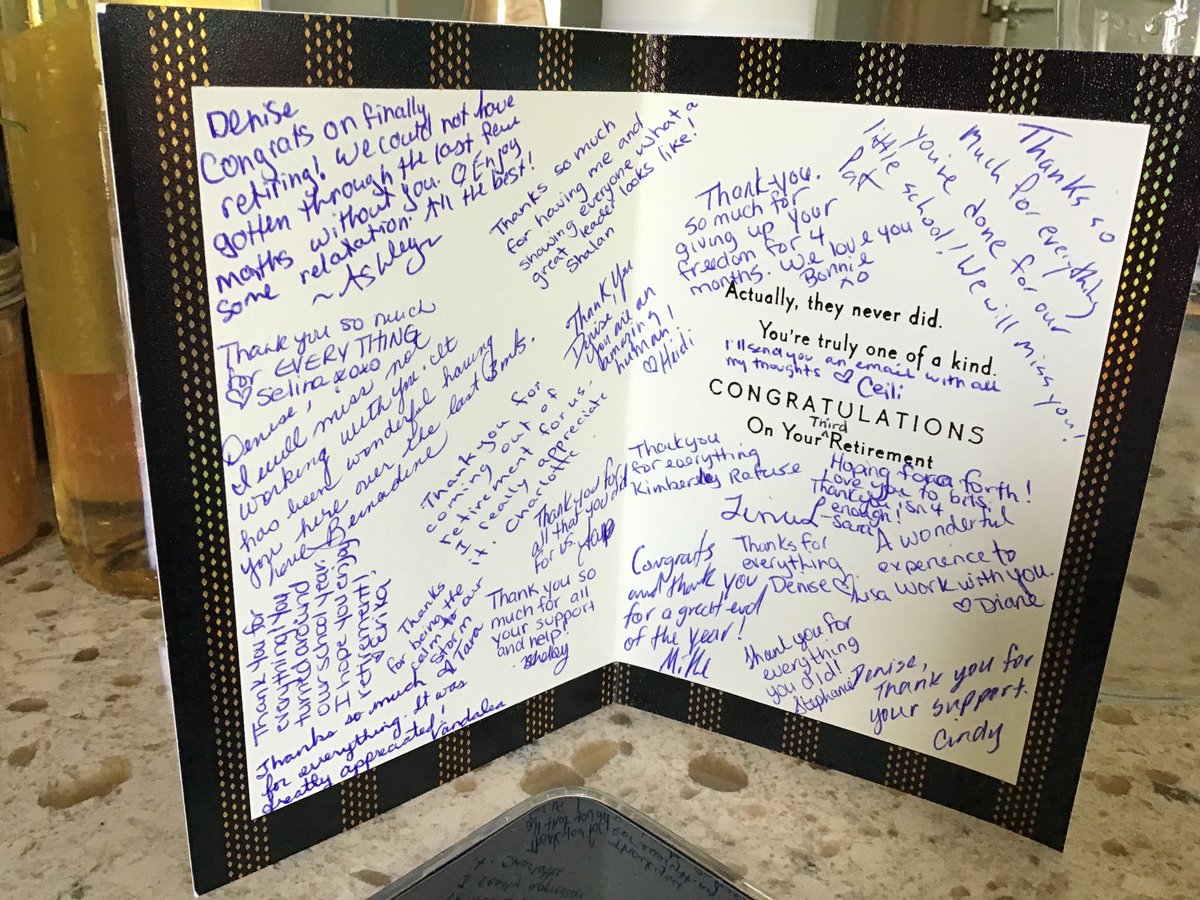 Denise
Congrats on finally
retiring! We could not have
gotten through the last few
months without you. Enjoy
some relation All the best!
~Ashley~
Thanks so much
for having me and
showing everyone what a
great leader looks like!
Shalan
Thank you so much
for EVERYTHING
♡ Selina xoxo
Thank you
Denise
you are an
amazing
human!
♡ Heidi
Denise,
I will miss not
working with you. It
has been wonderful having
you here over the last 3 mnts.
love, Bernadine
Thank you for
coming out of
retirement for us.
I really appreciate
it. Charlotte
Thank you for
all that you did
for us.
Thank you for
everything you
turned around
our school year.
I hope you enjoy
retirement!
Erika
Thanks
for being the
calm to our
storm
Tara
Thank you so
much for all
your support
and help!
Shelley
Thanks so much
for everything. It was
greatly appreciated!
Vandalea
Thank-you
so much for
giving up your
freedom for 4
months. We love you
Bonnie
xo
Thanks so
much for everything
you've done for our
little school! We will miss you!
Pax
Actually, they never did.
You're truly one of a kind.
I'll send you an email with all
my thoughts ♡ Ceili
CONGRATULATIONS
On Your Third Retirement
Hoping for a forth!
Love you to bits,
Thankyou isn't
enough!
-Sara
Thankyou
for everything
Kimberly Rafuse
A wonderful
experience to
work with you.
♡ Diane
Thanks for
everything
Denise ♡.
Lisa
Congrats
and thank you
for a great end
of the year!
Mike
Thank you for
everything
you did!
Stephanie
Denise,
Thank you for
your support.
Cindy